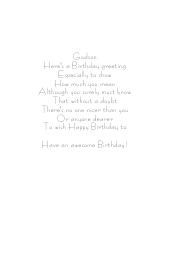 Godson
Here's a Birthday greeting
Especially to show
How much you mean
Although you surely must know
That without a doubt
There's no one nicer than you
Or anyone dearer
To wish Happy Birthday to
Have an awesome Birthday!